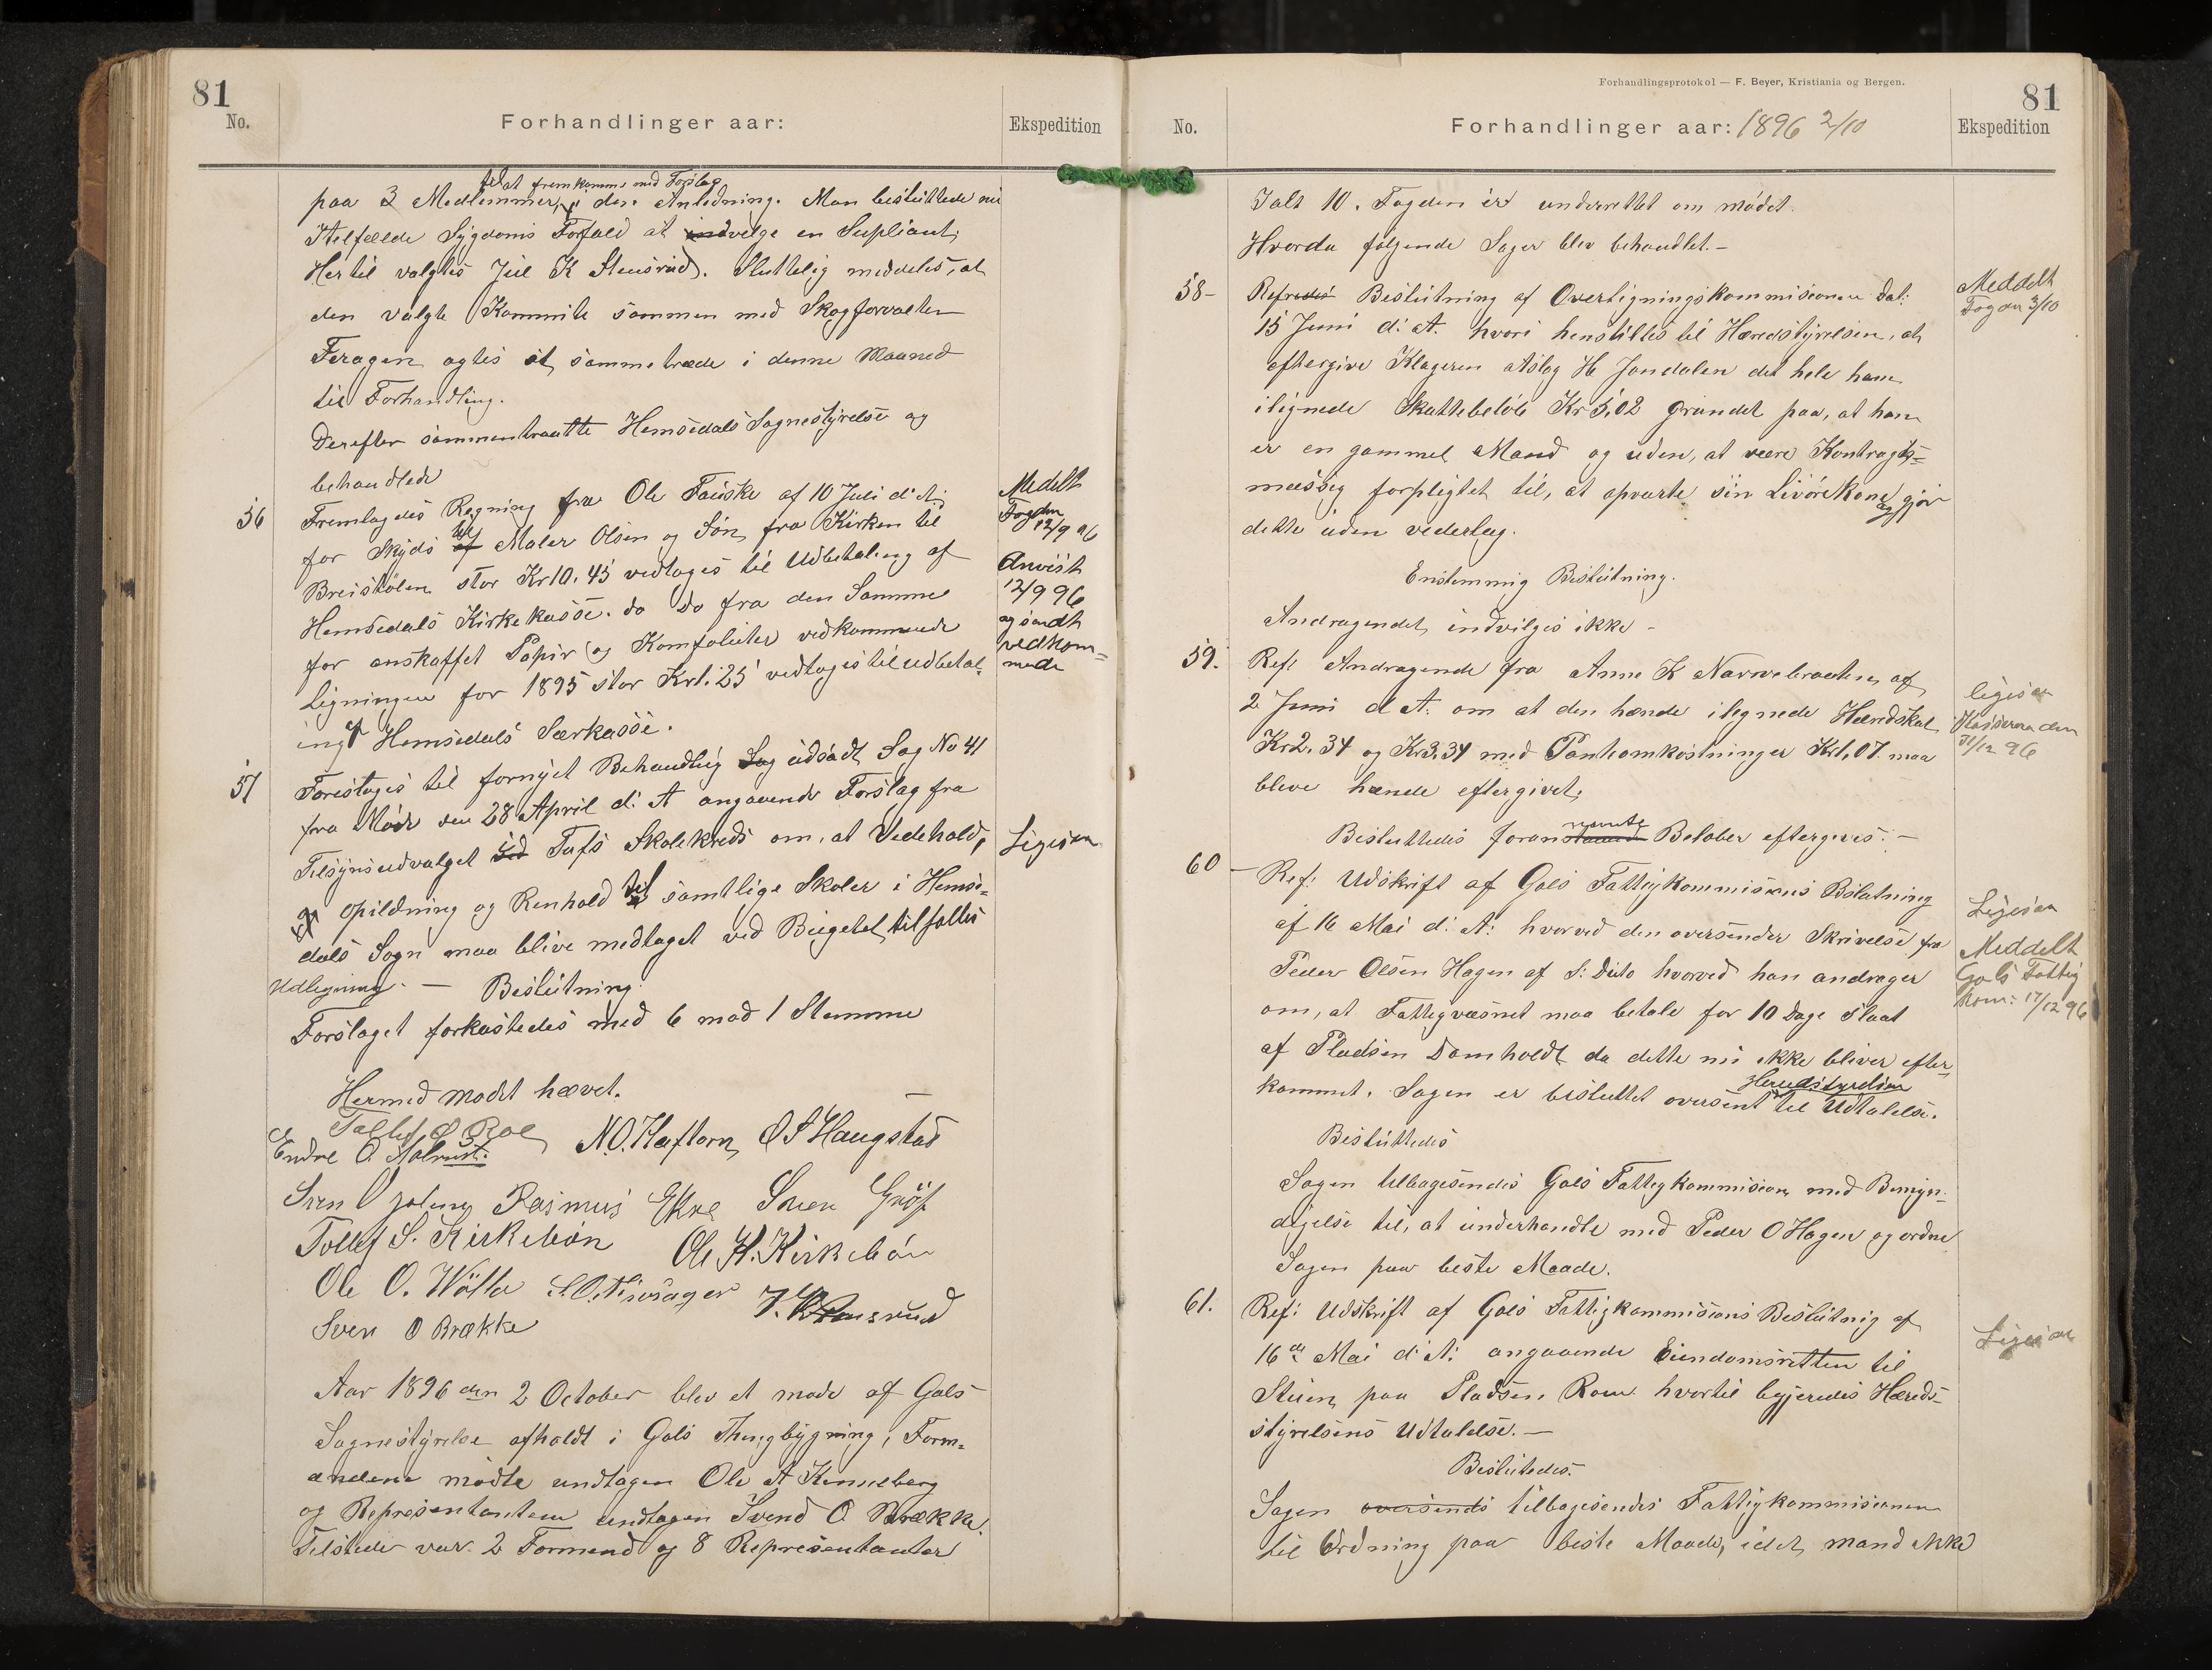 81
No.
Forhandlinger aar:
Ekspedition
til at fremkomme med Forslag
paa 3 Medlemmer, i den Anledning. Man besluttede nu
Itilfælde Sygdoms Forfald at indvelge en Supliant,
Hertil valgtes Juel K Stensrud. Sluttelig meddeles, at
den valgte Kommite sammen med Skogforvalter
Feragen agtes at sammetræde i denne Maaned
til Forhandling.
Derefter sammentraatte Hemsedals Sognestyrelse og
behandlede
56 Fremlagdes Regning fra Ole Fauske af 10 Juli d: A:
for Skyds af til Maler Olsen og Søn fra Kirken til
Breistølen stor Kr 10.45 vedtoges til Udbetaling af
Hemsedals Kirkekasse. do do fra den Samme
for anskaffet Papir og Komfoluter vedkommende
Ligningen for 1895 stor Kr 1.25 vedtoges til udbetal-
ing af Hemsedals Særkasse.
Medelt
Fogden
12/9 96
Anvist
12/9 96
og sendt
vedkom=
mende
57 Foretoges til fornyet Behandlig Sag udsadt Sag No 41
fra Møde den 28 April d: A angaaende Forslag fra
Tilsynsudvalget ved Tufs Skolekreds om, at Vedehold,
og Opildning og Renhold til samtlige Skoler i Hemse-
dals Sogn maa blive medtaget ved Bugetet, tilfælles
Udligning. — Beslutning.
Forslaget forkastedes med 6 mod 1 Stemme
Ligesaa
Hermed mødet hævet.
Tollef O Roe N. O. Haftorn O T Haugstad
Endre O. Holmest.
Sven Golmo Rasmus Ekre Sven Grøf
Tollef S. Kirkebøn Ole H. Kirkebøn
Ole O. Wøllo J. K Stensrud
Sven O Brække
Aar 1896 den 2 October blev et møde af Gols
Sognestyrelse afholdt i Gols Thingbygning, Form-
ændene mødte undtagen Ole A Kinneberg
og Representantene undtagen Svend O Brække.
Tilstede var 2 Formend og 8 Representanter
Forhandlingsprotokol — F. Beyer, Kristiania og Bergen.
81
No.
Forhandlinger aar: 1896 2/10
Ekspedition
Ialt 10. Fogden er underrettet om mødet.
Hvorda følgende Sager blev behandlet. –
58– Refredes Beslutning af Overligningskommisionen dat:
15 Juni d: A. hvori henstilles til Heredstyrelsen, at
eftergive Klageren Aslag H Jondalen det hele ham
ilignede Skattebeløb Kr 5,02 grundet paa, at han
er en gammel Mand og uden, at være Kontragts=
mæssig forpligtet til, at opvarte sin Livørekone og gjør
dette uden vederlag.
Enstemmig Beslutning.
Andragendet indvilges ikke –
Meddelt
Fogden 3/10
59. Ref: Andragende fra Anne K Narvebraaten, af
2 Juni d A. om at den hænde ilegnede Heredskat
Kr 2.34 og Kr 3.34 med Pantomkostninger Kr 1.07 maa
bleve hænde eftergivet,
Besluttedes forannævnte Beløber eftergives. –
ligesaa
Kasseren den
31/12 96
60 – Ref: Udskrift af Gols Fattigkommisions Beslutning
af 16 Mai d: A: hvorved den oversender Skrivelse fra
Peder Olsen Hagen af S: Dato hvorved han andrager
om, at Fattigvæsnet maa betale for 10 Dage slaat
af Pladsen Domholdt da dette nu ikke bliver efter-
kommet. Sagen er besluttet oversent til Heredstyrelsen Udtalelse.
Besluttedes
Sagen tilbagesendes Gols Fattigkommision med Bemyn-
digelse til, at underhandle med Peder O Hagen og ordne
Sagen paa beste Maade.
Ligesaa
Meddelt
Gols Fattig
kom: 17/12 96
61. Ref: Udskrift af Gols Fattigkommisions Beslutnig af
16de Mai d: A: angaaende Eiendomsretten til
Stuen paa Pladsen Roem hvortil begjeredes Hereds-
styrelsens Udtalelse. —
Besluttedes.
Sagen oversendes tilbagesendes Fattigkommisionen
til Ordning paa beste Maade, idet mand ikke
Ligesaa